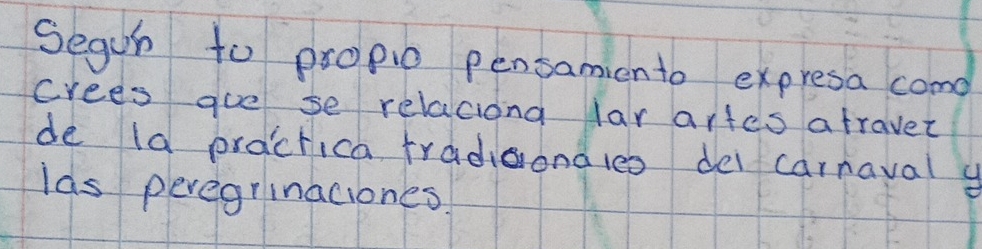 Segun to propio pensamiento expresa como
crees que se relaciona lar artes atravez
de la práctica tradicionales del carnaval y
las peregrinaciones.